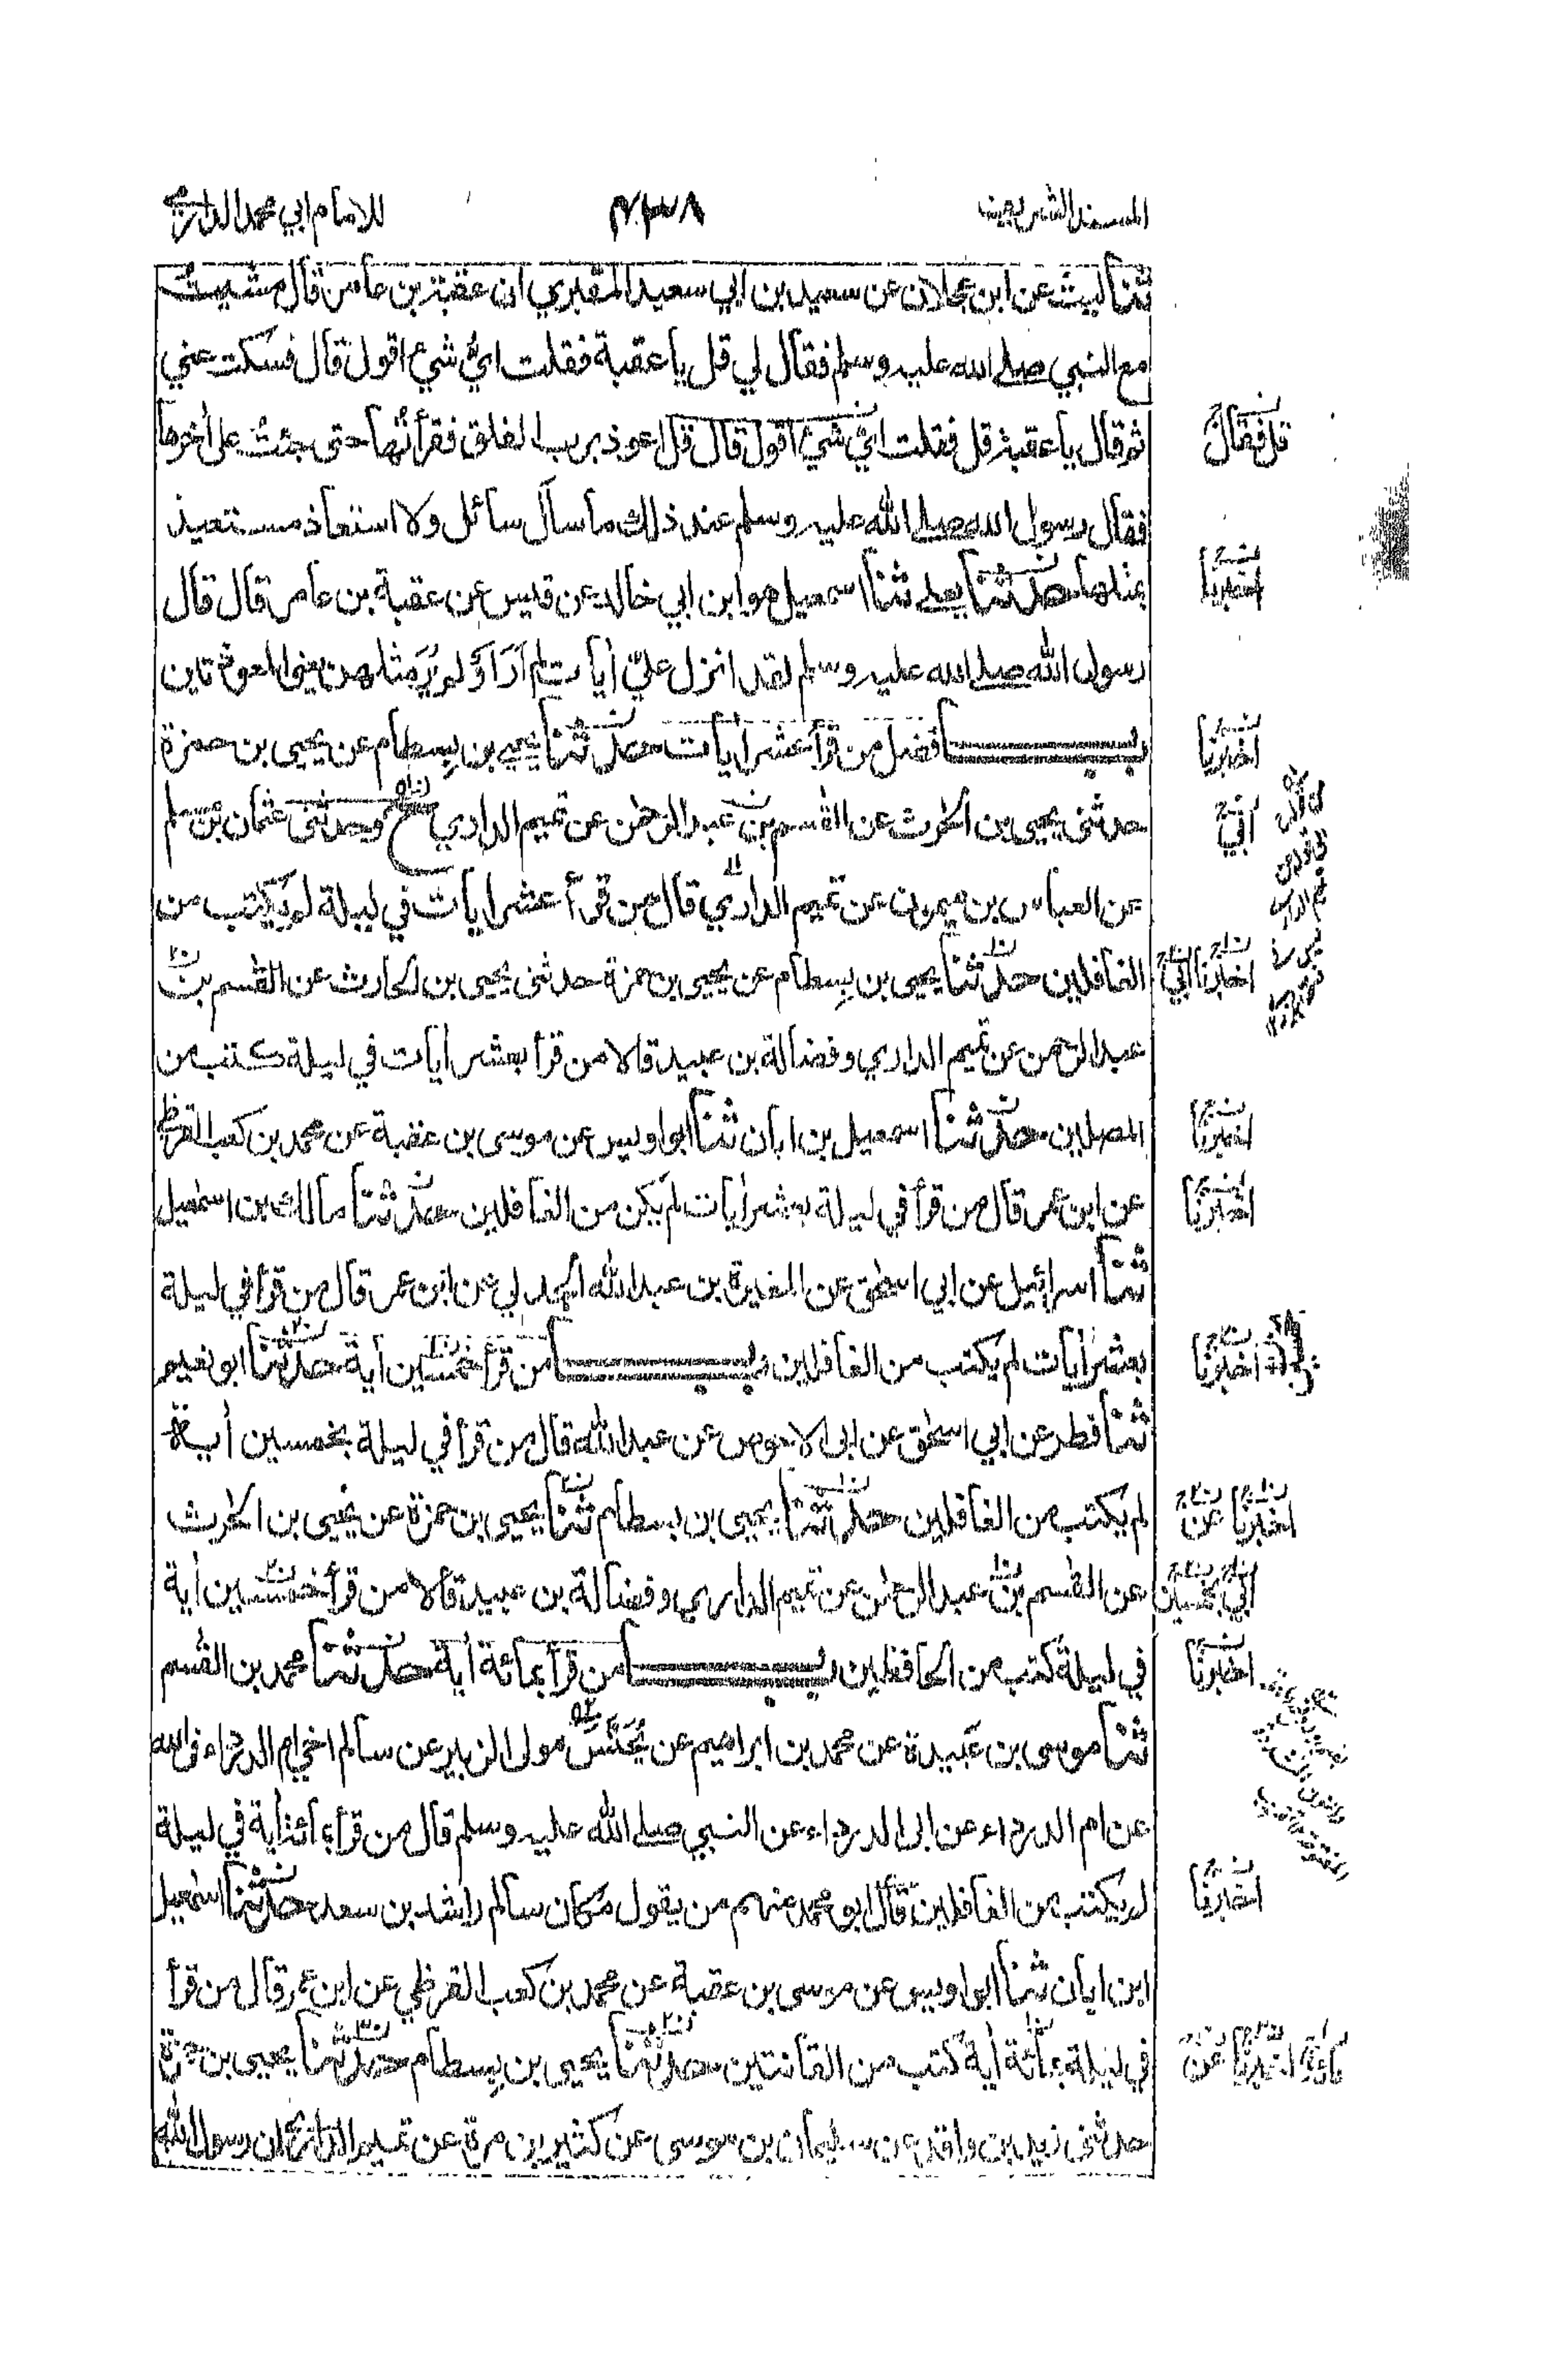 المسند الشريف
٤٣٨
للامام ابي محمد الدارمي
ثنا ليث عن ابن عجلان عن سعيد بن ابي سعيد المقبري ان عقبة بن عامر قال مشيت
مع النبي صلى الله عليه وسلم فقال لي قل يا عقبة فقلت اي شيء اقول قال فسكت عني
ثم قال يا عقبة قل فقلت اي شيء اقول قال قل اعوذ برب الفلق فقرأتها حتى جئت على اخرها
فقال رسول الله صلى الله عليه وسلم عند ذلك ما سأل سائل ولا استعاذ مستعيذ
بمثلها حدثنا يعلى ثنا اسمعيل هو ابن ابي خالد عن قيس عن عقبة بن عامر قال قال
رسول الله صلى الله عليه وسلم لقد انزل علي أيات لم أر او لم ير مثلهن يعني المعوذتين
باب فضل من قرأ عشر أيات حدثنا يحيى بن بسطام عن يحيى بن حمزة
حدثنى يحيى بن الحرث عن القسم بن عبد الرحمن عن تميم الداري ح وحدثنى عثمان بن مسلم
عن العباس بن ميمون عن تميم الداري قال من قرأ عشر أيات في ليلة لم يكتب من
الغافلين حدثنا يحيى بن بسطام عن يحيى بن حمزة حدثنى يحيى بن الحارث عن القسم بن
عبد الرحمن عن تميم الداري وفضالة بن عبيد قالا من قرأ بعشر أيات في ليلة كتب من
المصلين حدثنا اسمعيل بن ابان ثنا ابو اويس عن موسى بن عقبة عن محمد بن كعب القرظي
عن ابن عمر قال من قرأ في ليلة بعشر أيات لم يكن من الغافلين حدثنا مالك بن اسمعيل
ثنا اسرائيل عن ابي اسحق عن المغيرة بن عبد الله الجدلي عن ابن عمر قال من قرأ في ليلة
بعشر أيات لم يكتب من الغافلين باب من قرأ خمسين أية حدثنا ابو نعيم
ثنا فطر عن ابي اسحق عن ابى الاحوص عن عبد الله قال من قرأ في ليلة بخمسين أية
لم يكتب من الغافلين حدثنا يحيى بن بسطام ثنا يحيى بن حمزة عن يحيى بن الحرث
عن القسم بن عبد الرحمن عن تميم الداري وفضالة بن عبيد قالا من قرأ خمسين أية
في ليلة كتب من الحافظين باب من قرأ بمائة أية حدثنا محمد بن القسم
ثنا موسى بن عبيدة عن محمد بن ابراهيم عن يحنس مولى الزبير عن سالم اخي ام الدرداء فى الله
عن ام الدرداء عن ابى الدرداء عن النبي صلى الله عليه وسلم قال من قرأ بمائة أية في ليلة
لم يكتب من الغافلين قال ابو محمد منهم من يقول مكان سالم راشد بن سعد حدثنا اسمعيل
ابن ابان ثنا ابو اويس عن موسى بن عقبة عن محمد بن كعب القرظي عن ابن عمر قال من قرأ
في ليلة بمائة أية كتب من القانتين حدثنا يحيى بن بسطام حدثنا يحيى بن حمزة
حدثنى زيد بن واقد عن سليمان بن موسى عن كثير بن مرة عن تميم الداري ان رسول الله
قل فقال
اخبرنا
اخبرنا
ابي
اخبرنا ابي
اخبرنا
اخبرنا
اخبرنا
اخبرنا عن
ابي بخمسين
اخبرنا
اخبرنا
اخبرنا عن